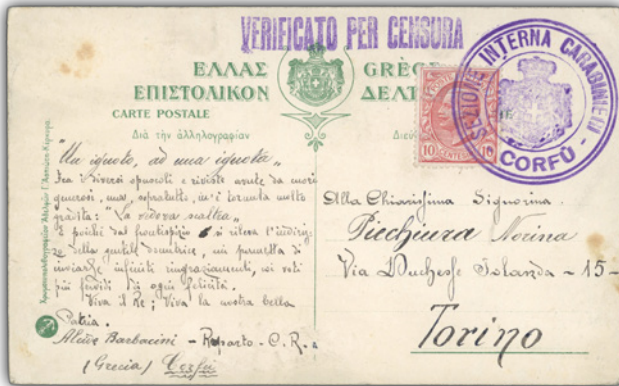 VERIFICATO PER CENSURA
ΕΛΛΑΣ GRÈCE
ΕΠΙΣΤΟΛΙΚΟΝ ΔΕΛΤ
CARTE POSTALE
Διὰ τὴν ἀλληλογραφίαν
SEZIONE INTERNA CARABINIERI
- CORFÙ -
10 CENTES 10
"Un ignoto, ad una ignota"
Fra i diversi opuscoli e riviste avute da cuori
generosi, una, sopratutto, m'è tornata molto
gradita: "La vedova scaltra"
E poichè dal frontispizio si rileva l'indiriz-
zo della gentil donatrice, mi permetta di
inviarle infiniti ringraziamenti, coi voti
più fervidi di ogni felicità.
Viva il Re; Viva la nostra bella
Patria.
Alcide Barbacini - Reparto - C. R.
(Grecia) Corfu
Alla Chiarissima Signorina
Picchiura Norina
Via Duchesse Jolanda - 15 -
Torino